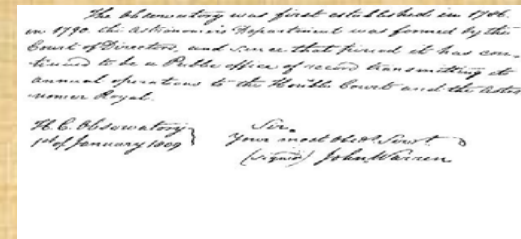 The Observatory was first established in 1786.
in 1790 the Astronomic Department was formed by the
Court of Directors, and since that period it has con-
tinued to be a Public office of record transmitting its
annual operations to the Honble Court and the Astro-
nomer Royal.
H. C. Observatory
1st of January 1809
Sir,
Your most Obedt. Servt.
(signed) John Warren